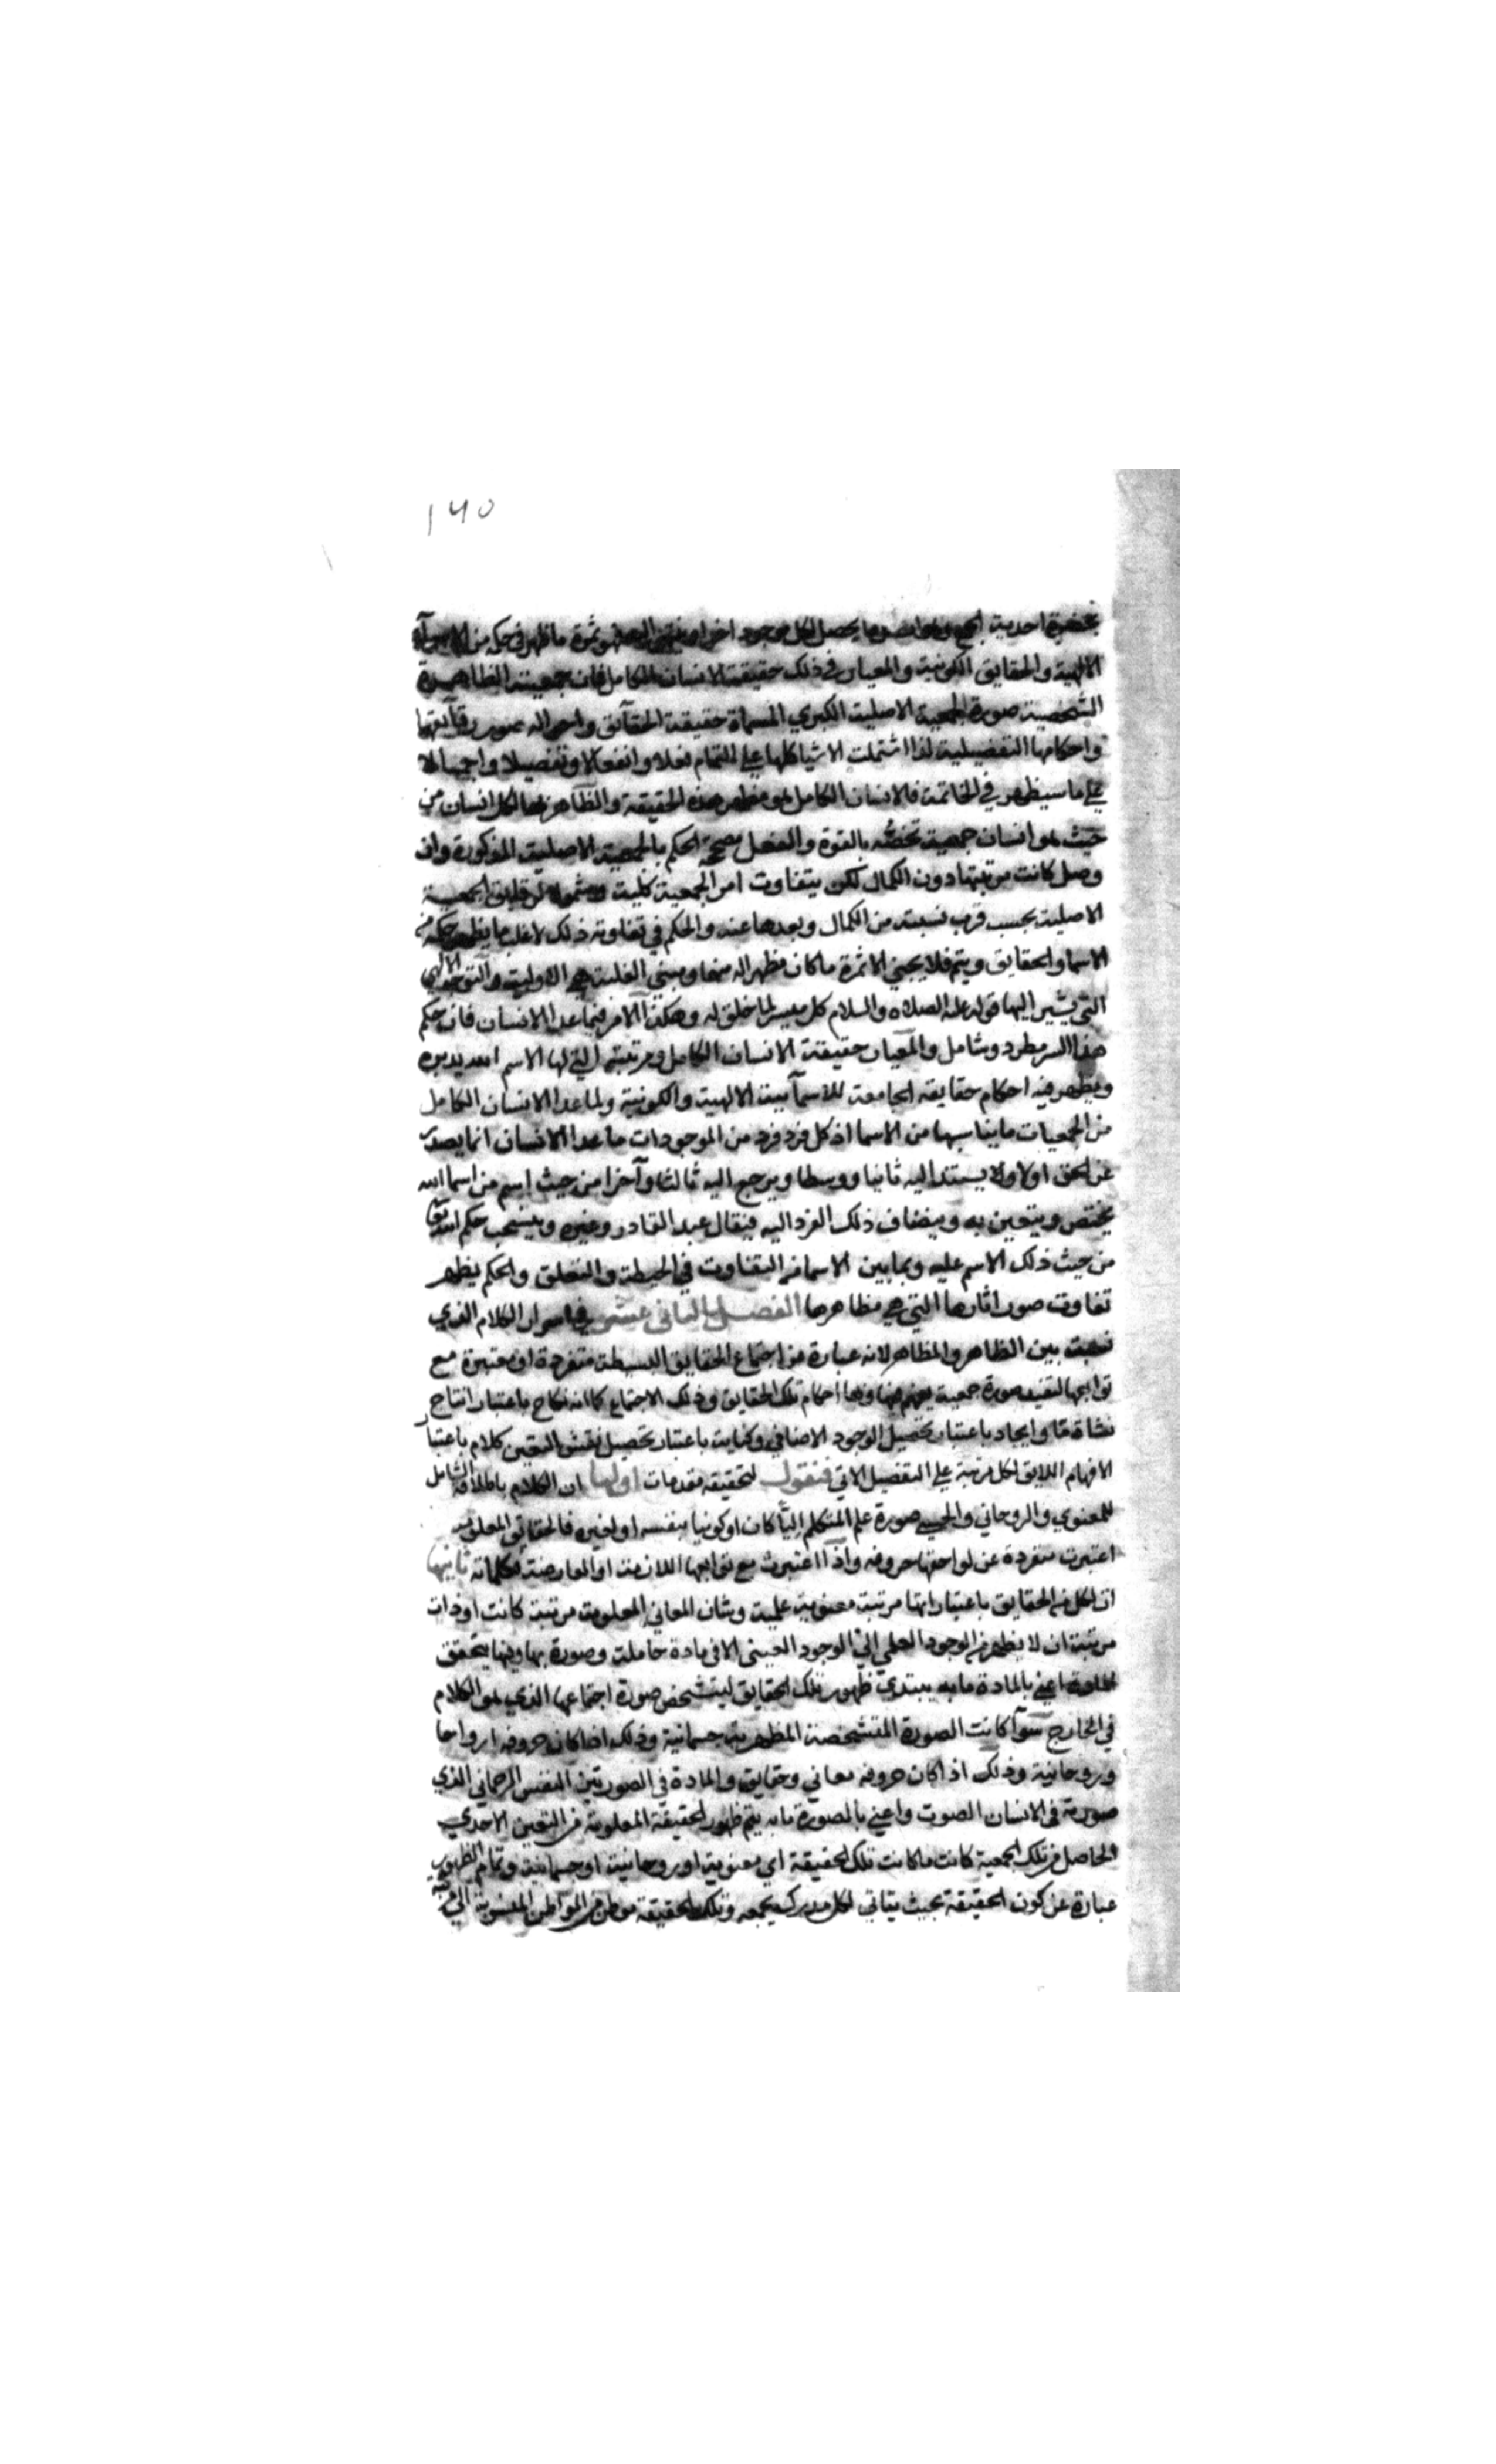 ١٦٥
بحضرة احدية الجمع يحصل لكل موجود اخر ثمرة ما ظهر فى حكمه من الاسمآء
الالهية والحقايق الكونية والمعيار فى ذلك حقيقة الانسان الكامل فان جمعيته الظاهرة
الشخصية صورة الجمعية الاصلية الكبري المسماة حقيقة الحقآئق واحواله صور رقآيقها
واحكامها التفصيلية لذا اشتملت الاشيا كلها علي التمام فعلا وانفعالا وتفصيلا واجمالا
علي ما سيظهر في الخاتمة فالانسان الكامل هو مظهر هذه الحقيقة والظاهر بها لكل انسان من
حيث هو انسان جمعية تخصه بالقوة والفعل مصححة الحكم بالجمعية الاصلية المذكورة وان
وصل كانت مرتبتها دون الكمال لكن يتفاوت امر الجمعية كلية الجمعية
الاصلية بحسب قرب نسبته من الكمال وبعدها عنه والحكم في تفاوته ذلك لاغلب ما يظهر حكمه من
الاسما والحقايق ويتم فلا يجني الا ثمرة ما كان مظهرا له منها ومبني الغلبة هي الاولية والتوجه الالهي
التي يشير اليها قوله عليه الصلاه والسلام كل ميسر لما خلق له وهكذا الامر فيما عدا الانسان فان حكم
هذا السر مطرد وشامل والمعيار حقيقة الانسان الكامل ومرتبته التي لها الاسم الله يدبره
ويظهر فيه احكام حقايقه الجامعة للاسمآئية الالهية والكونية ولما عدا الانسان الكامل
من الجمعيات ما يناسبها من الاسما اذ كل فرد فرد من الموجودات ما عدا الانسان انما يصدر
عن الحق اولا ولا يستند اليه ثانيا ووسطا ويرجع اليه ثالثا وآخرا من حيث اسم من اسما الله
يختص ويتعين به وينضاف ذلك الفرد اليه فيقال عبد القادر وغيره وينسحب حكم الله تعالى
من حيث ذلك الاسم عليه وبما بين الاسما من التفاوت في الحيطة والتعلق والحكم يظهر
تفاوت صور اثارها التي هي مظاهرها الفصل الثاني عشر في اسرار الكلام الذي
نسبت بين الظاهر والمظاهر لانه عبارة عن اجتماع الحقايق البسيطة متفردة او معتبرة مع
توابعها لتفيد صورة جمعية يفهم منها وبها احكام تلك الحقايق وذلك الاجتماع كما انه نكاح باعتبار انتاج
نشاة مّا وايجاد باعتبار تحصيل الوجود الاضافي وكتابت باعتبار تحصيل نقش التعين كلام باعتبار
الافهام اللايق لكل مرتبة علي التفصيل الاتي فنقول لتحقيقه مقدمات اولها ان الكلام باطلاقه الشامل
للمعنوي والروحاني والحسي صورة علم المتكلم الهيّا كان او كونيا بنفسه او لغيره فالحقايق المعلومة
اعتبرت منفردة عن لواحقها حروفه واذا اعتبرت مع توابعها اللازمة او العارضة فكلماته ثانيها
ان لكل من الحقايق باعتبار انها مرتبة معنوية علمية وشان المعاني المعلومة مرتبة كانت او ذات
مرتبة ان لا يظهر من الوجود العلمي الي الوجود العيني الا في مادة حاملة وصورة بها وفيها يتحقق
اعني بالمادة ما به يبتدي ظهور تلك الحقايق ليتشخص صورة اجتماعها الذي هو الكلام
في الخارج سوآ كانت الصورة المتشخصة المظهرية جسمانية وذلك اذا كان حروفه ارواحا
وروحانية وذلك اذا كان حروفه معاني وحقايق والمادة في الصورتين النفس الرحماني الذي
صورته في الانسان الصوت واعني بالصورة ما به يتم ظهور الحقيقة المعلومة من التعين الاحدي
الحاصل من تلك الجمعية كانت ما كانت تلك الحقيقة اي معنوية او روحانية او جسمانية وتمام الظهور
عبارة عن كون الحقيقة بحيث يتاتي لكل مدرك يجمعه وتلك الحقيقة موطن من المواطن المنسوبة الي مرتبة